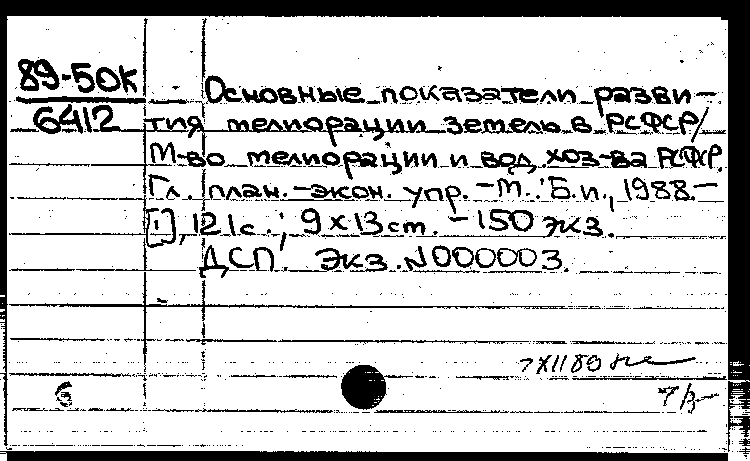 89-50К
6412
Основные показатели разви-
тия мелиорации земель в РСФСР/
М-во мелиорации и вод. хоз-ва РСФСР.
Гл. план.-экон. упр. -М.: Б.и., 1988.-
[1], 121с.; 9х13 см. -150 экз.
ДСП. Экз. N000003.
7 XII 89
6